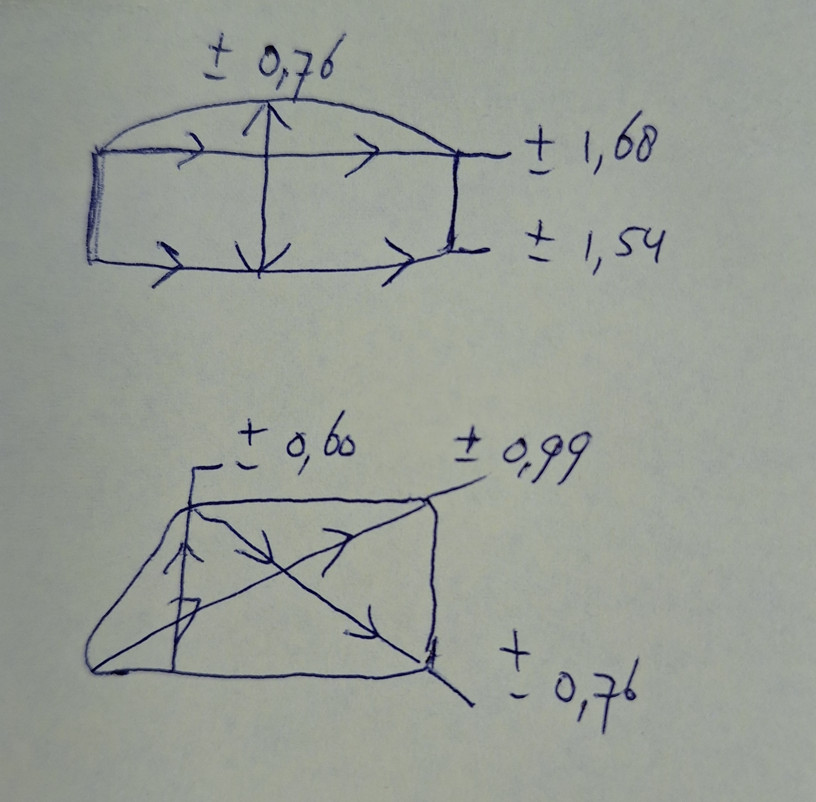 ± 0,76
± 1,68
± 1,54
± 0,60
± 0,99
± 0,76